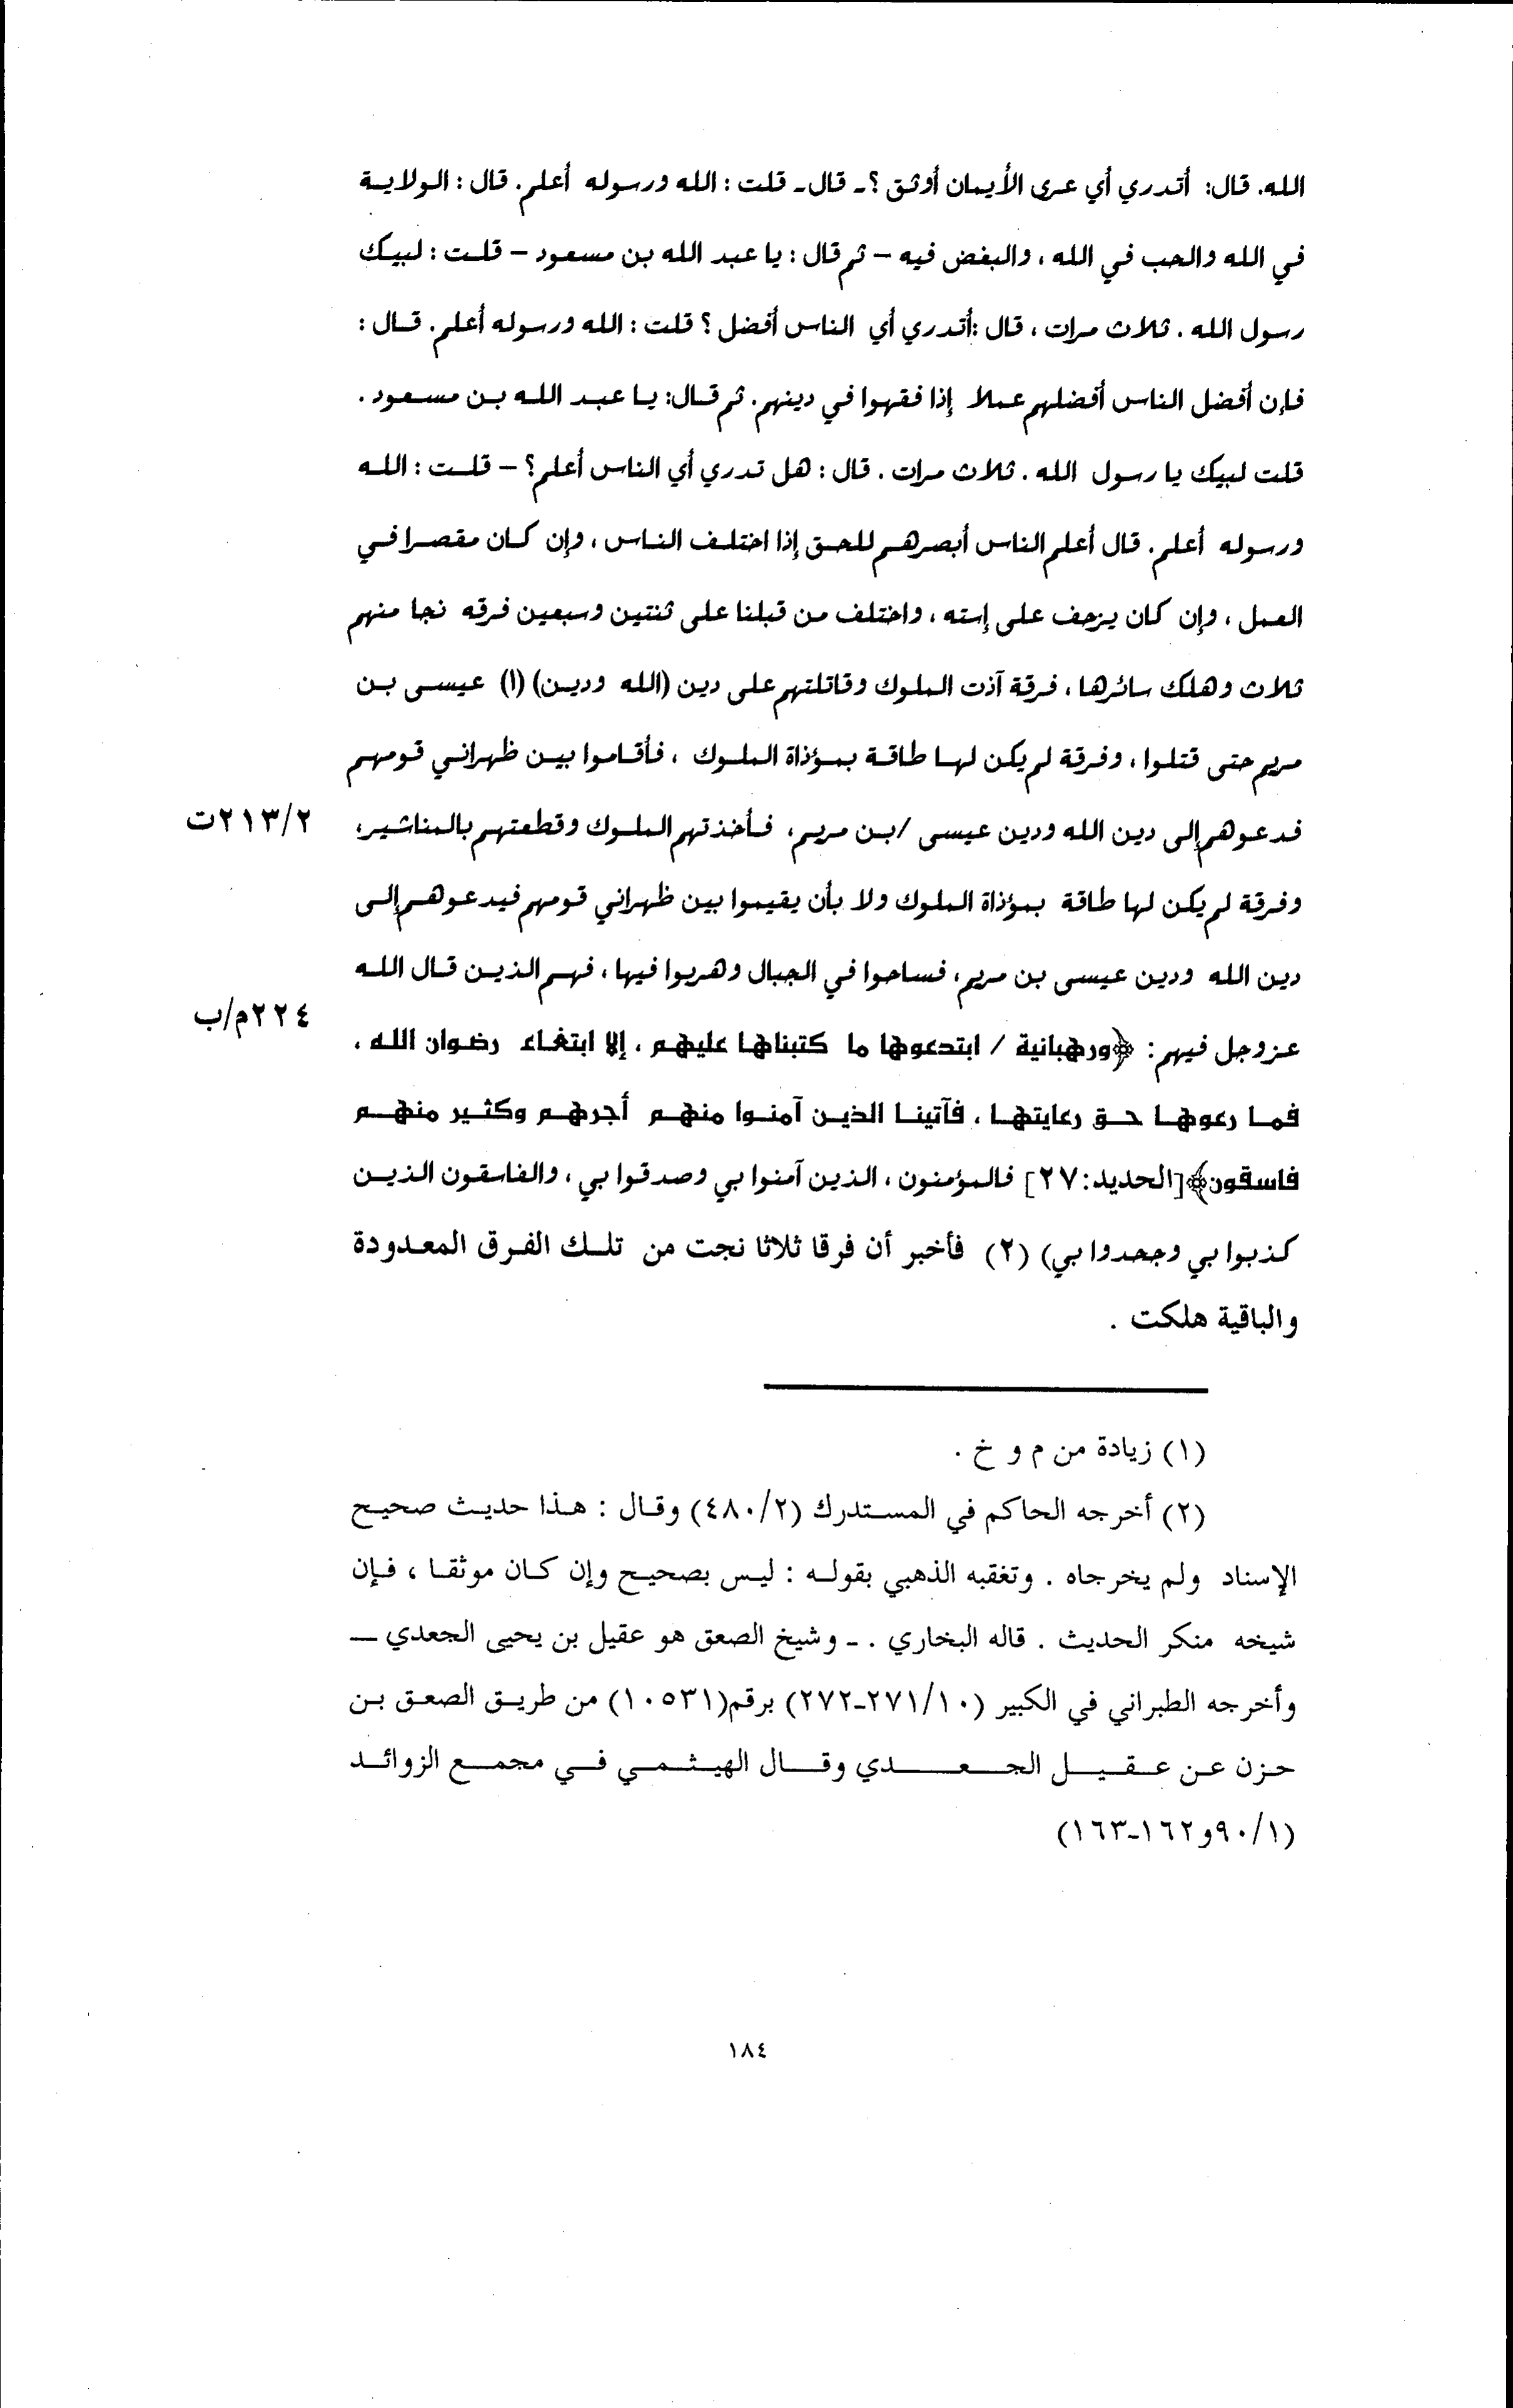 الله. قال: أتدري أي عرى الأيمان أوثق ؟ـ قال ـ قلت : الله ورسوله أعلم. قال : الولاية
في الله والحب في الله ، والبغض فيه – ثم قال : يا عبد الله بن مسعود – قلت : لبيك
رسول الله . ثلاث مرات ، قال :أتدري أي الناس أفضل ؟ قلت : الله ورسوله أعلم. قال :
فإن أفضل الناس أفضلهم عملا إذا فقهوا في دينهم. ثم قال: يا عبد الله بن مسعود .
قلت لبيك يا رسول الله . ثلاث مرات . قال : هل تدري أي الناس أعلم؟ – قلت : الله
ورسوله أعلم. قال أعلم الناس أبصرهم للحق إذا اختلف الناس ، وإن كان مقصرا في
العمل ، وإن كان يزحف على إسته ، واختلف من قبلنا على ثنتين وسبعين فرقه نجا منهم
ثلاث وهلك سائرها ، فرقة آذت الملوك وقاتلتهم على دين (الله ودين) (١) عيسى بن
مريم حتى قتلوا ، وفرقة لم يكن لها طاقة بمؤذاة الملوك ، فأقاموا بين ظهراني قومهم
فدعوهم إلى دين الله ودين عيسى /بن مريم، فأخذتهم الملوك وقطعتهم بالمناشير،
٢/٢١٣ت
وفرقة لم يكن لها طاقة بمؤذاة الملوك ولا بأن يقيموا بين ظهراني قومهم فيدعوهم إلى
دين الله ودين عيسى بن مريم، فساحوا في الجبال وهربوا فيها ، فهم الذين قال الله
٢٢٤م/ب
عزوجل فيهم: ﴿ورهبانية / ابتدعوها ما كتبناها عليهم ، إلا ابتغاء رضوان الله ،
فما رعوها حق رعايتها ، فآتينا الذين آمنوا منهم أجرهم وكثير منهم
فاسقون﴾[الحديد:٢٧] فالمؤمنون ، الذين آمنوا بي وصدقوا بي ، والفاسقون الذين
كذبوا بي وجحدوا بي) (٢) فأخبر أن فرقا ثلاثا نجت من تلك الفرق المعدودة
والباقية هلكت .
(١) زيادة من م و خ .
(٢) أخرجه الحاكم في المستدرك (٤٨٠/٢) وقال : هذا حديث صحيح
الإسناد ولم يخرجاه . وتغقبه الذهبي بقوله : ليس بصحيح وإن كان موثقا ، فإن
شيخه منكر الحديث . قاله البخاري . ـ وشيخ الصعق هو عقيل بن يحيى الجعدي ــ
وأخرجه الطبراني في الكبير (٢٧١/١٠-٢٧٢) برقم(١٠٥٣١) من طريق الصعق بن
حزن عن عقيل الجعدي وقال الهيثمي في مجمع الزوائد
(٩٠/١و١٦٢-١٦٣)
١٨٤